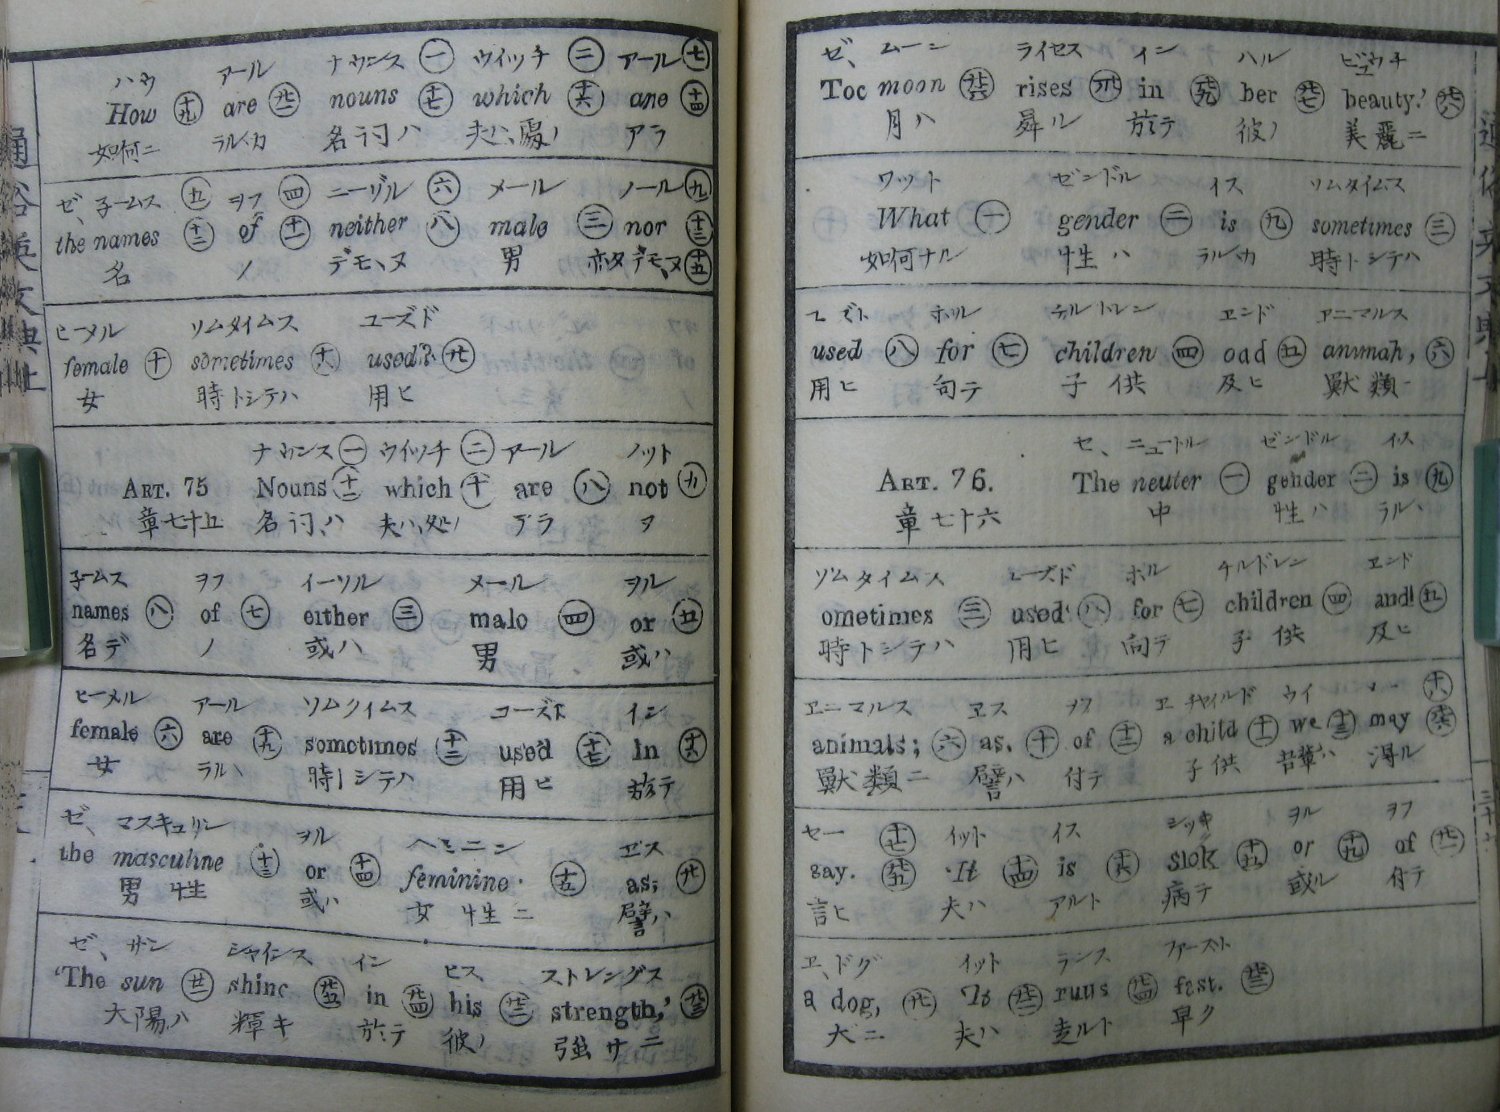 ハウ アール ナウンス 一 ウイッチ 二 アール 七
How 十九 are 廿二 nouns 十七 which 十六 are 十四
如何ニ ラルヽカ 名詞ハ 夫ハヽ處ノ アラ
ゼ、子ームス 五 ヲフ 四 ニーゾル 六 メール ノール 九
the names 十二 of 十一 neither 八 male 三 nor 十三
名 ノ デモヽヌ 男 亦タデモヽヌ 十五
ヒーメル ソムタイムス ユーズド
female 十 sometimes 十八 used?
女 時トシテハ 用ヒ
ナウンス 一 ウイッチ 二 アール ノット
ART. 75 Nouns 十二 which 十 are 八 not 九
章七十五 名詞ハ 夫ハヽ処ノ アラ ヌ
子ームス ヲフ イーソル メール ヲル
names 八 of 七 either 三 malo 四 or 五
名デ ノ 或ハ 男 或ハ
ヒーメル アール ソムタイムス ユーズド イン
female 六 are 十九 somotimes 十二 used 十七 in 十六
女 ラルヽ 時トシテハ 用ヒ 於テ
ゼ、 マスキュリン ヲル ヘミニン ヱス
the masculine 十三 or 十四 feminine 十五 as;
男性 或ハ 女性ニ 譬ハ
ゼ、 サン シャインス イン ヒス ストレングス
'The sun 廿一 shinc 廿五 in 廿四 his 廿三 strength,'
大陽ハ 輝キ 於テ 彼ノ 強サニ
ゼ、 ムーン ライセス イン ハル ビュウチ
Toc moon rises 卅 in 廿九 her beauty.'
月ハ 昇ル 於テ 彼ノ 美麗ニ
ワット ゼンドル イス ソムタイムス
What 一 gender 二 is 九 sometimes 三
如何ナル 性ハ ラルヽカ 時トシテハ
ユーズド ホル チルドレン ヱンド アニマルス
used 八 for 七 children 四 oad 五 animah, 六
用ヒ 向テ 子供 及ヒ 獸類ニ
ゼ、 ニュートル ゼンドル イス
ART. 76. The neuter 一 gender 二 is 九
章七十六 中 性ハ ラルヽ
ソムタイムス ユーズド ホル チルドレン ヱンド
ometimes 三 used 八 for 七 children 四 and 五
時トシテハ 用ヒ 向テ 子供 及ヒ
ヱニマルス ヱス ヲフ ヱ チャイルド ウイ 十八
animals; 六 as, 十 of 十二 a child 十一 we 十三 may
獸類ニ 譬ハ 付テ 子供 吾輩ハ 得ル
セー 十七 イット イス シッキ ヲル ヲフ
say. It 十四 is 十六 sick 十五 or 十九 of
言ヒ 夫ハ アルト 病テ 或ル 付テ
ヱ、ドグ イット ランス ファースト
a dog, It runs 廿四 fast. 廿三
犬ニ 夫ハ 走ルト 早ク
通俗英文典上